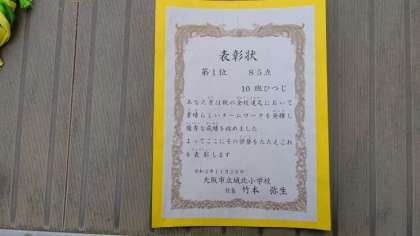 表彰状
第1位 85点
10班ひつじ
あなた方は秋の全校遠足において
素晴らしいチームワークを発揮し
優秀な成績を収めました
よってここにその栄誉をたたえこれ
を表彰します
大阪市立城北小学校
校長 竹本 弥生